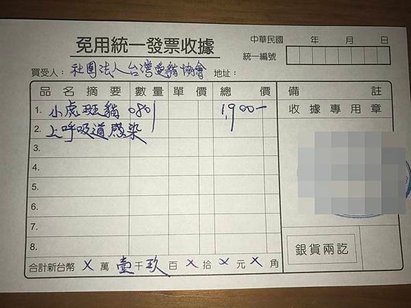 免用統一發票收據
中華民國 年 月 日
統一編號
買受人：社團法人台灣愛貓協會 地址：
品名摘要 數量 單價 總價 備註
1. 小虎斑貓 0801 1,900-
收據專用章
2. 上呼吸道感染
3.
4.
5.
6.
7.
8.
銀貨兩訖
合計新台幣 X 萬 壹 千 玖 百 X 拾 X 元 X 角